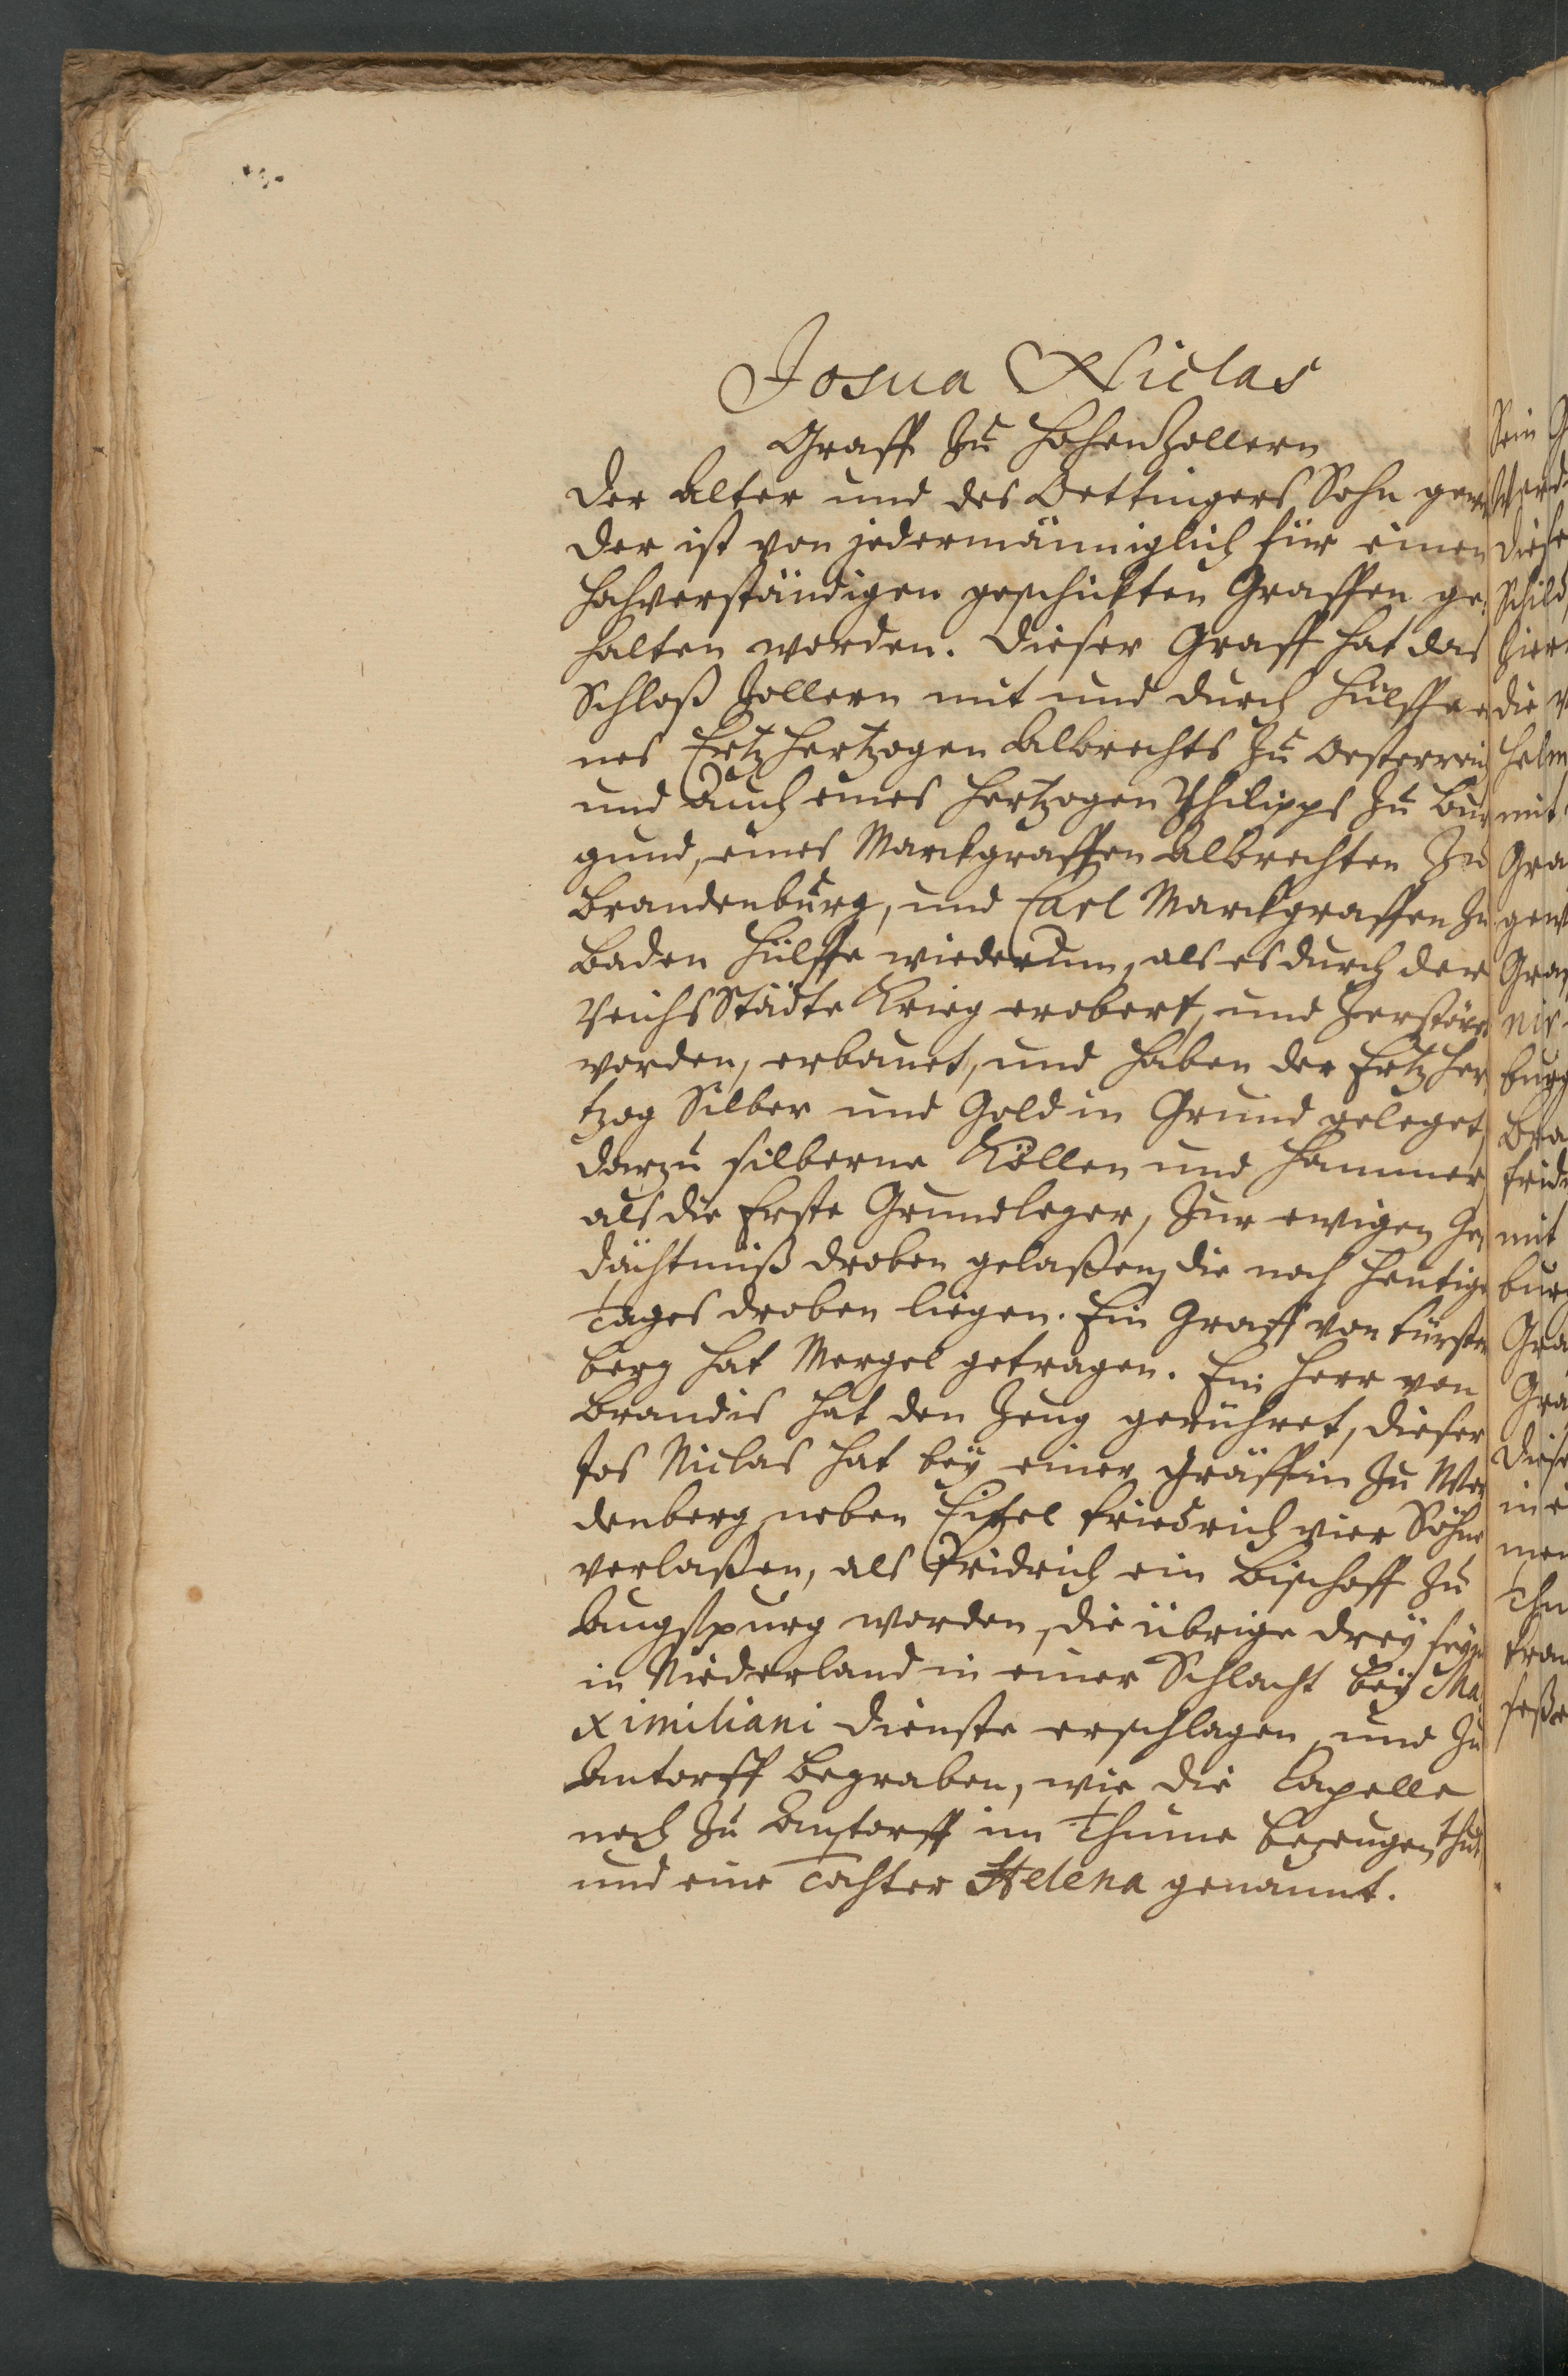 Josua Niclas
Graff zu HohenZollern
der alter und des Oettingers Sohn
der ist von jedermänniglich für einen
hohverständigen geschickten Graffen ge-
halten worden. dieser Graff hat das
Schloß Zollern mit und durch hülff ei
nes Ertzhertzogen Albrechts zu Oesterreich
und auch eines Hertzogen Philipps zu Bur
gund, eines Marckgraffen Albrechten zu
Brandenburg, und Carl Marckgraffen zu
Baden hülffe wiederum, als es durch der
ReichsStädte Krieg erobert, und zerstöret
worden, erbauet, und haben der Ertzher
tzog Silber und Gold in Grund geleget,
darzu silberne Köllen und Hammer,
als die Erste Grundleger, zur ewigen Ge
dächtnüß droben gelaßen, die noch heutige
Tages droben liegen. Ein Graff von Fürsten
berg hat Mergel getragen. Ein Herr von
Brandis hat den Zeug gerühret, dieser
Jos Niclas hat beÿ einer Gräffin zu Wer
denberg neben Eitel Friedrich vier Söhne
verlaßen, als Fridrich ein Bischoff zu
Augspurg worden, die übrige dreÿ seÿn
in Niederland in einer Schlacht beÿ Ma
ximiliani dienste erschlagen, und zu
Antorff begraben, wie die Capelle
noch zu Antorff im Thume bezeugen thut,
und eine Tochter Helena genannt.
Sein
diese
Schild
die
Helm
mit
Gra
Gra
burg
mit
burg
Gra
Gra
diese